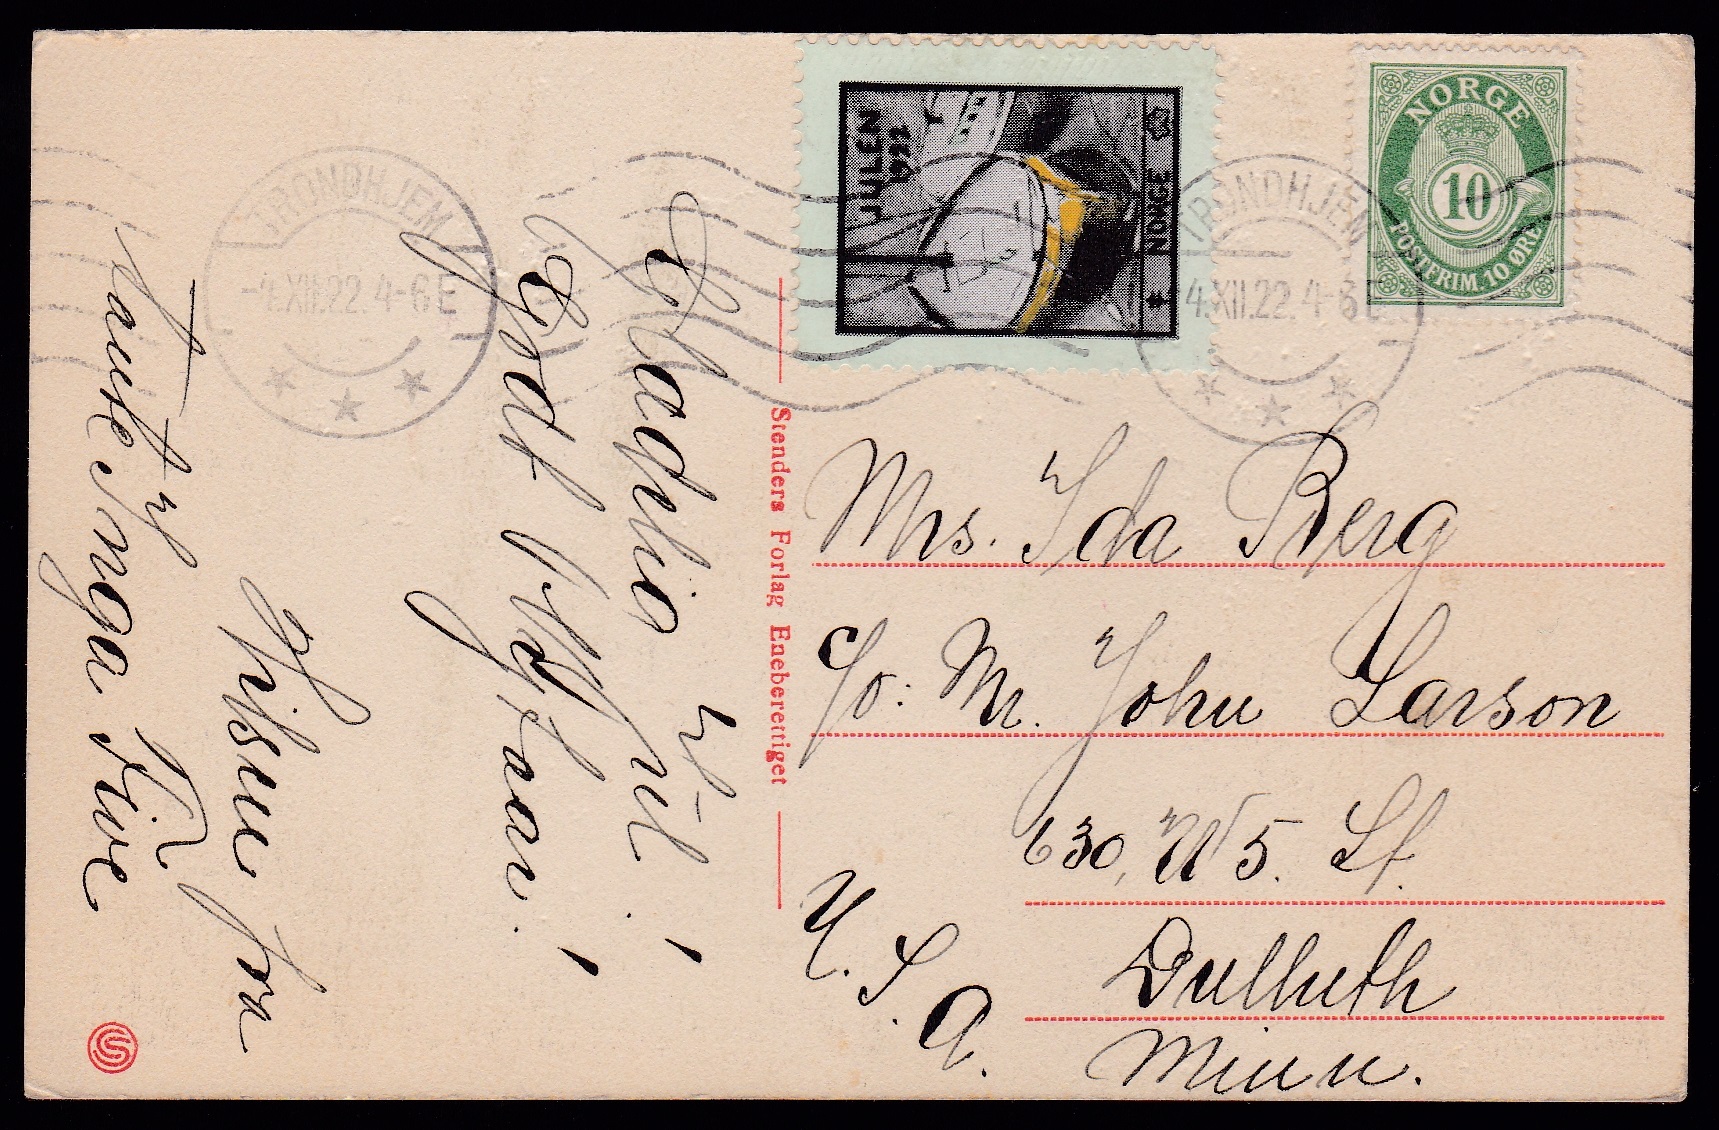 NORGE
10
POSTFRIM. 10 ØRE
JULEN
1922
NORGE
TRONDHJEM
-4.XII.22.4-6 E
TRONDHJEM
-4.XII.22.4-6 E
Mrs. Ida Berg
c/o: Mr. John Larson
630, W 5. St.
Dulluth
Minn.
U. S. A.
Stenders Forlag Eneberettiget
Glædelig
Jul!
Godt Nyttaar!
Hilsen fra
Tante Inga